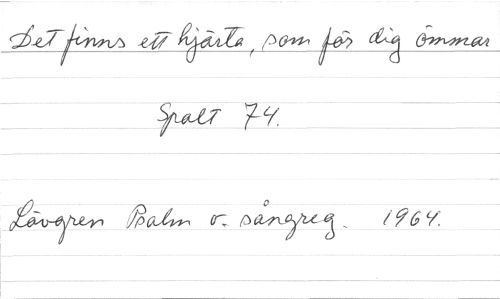 Det finns ett hjärta, som för dig ömmar
Spalt 74.
Lövgren Psalm o. sångreg. 1964.